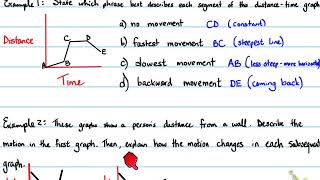 Example 1: State which phrase best describes each segment of the distance-time graph
Distance
A B C D E
Time
a) no movement CD (constant)
b) fastest movement BC (steepest line)
c) slowest movement AB (less steep - more horizontal)
d) backward movement DE (coming back)
Example 2: These graphs show a person's distance from a wall. Describe the
motion in the first graph. Then, explain how the motion changes in each subsequent
graph.